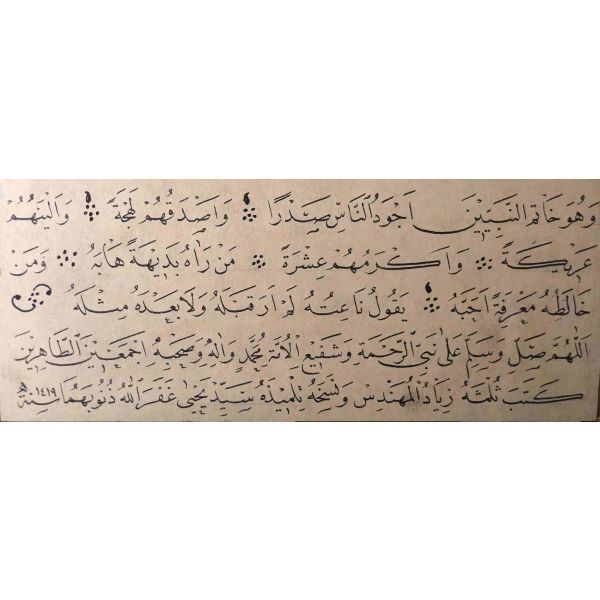 وَهُوَ خَاتَمُ النَّبِيِّينَ اَجْوَدُ النَّاسِ صَدْرًا وَاَصْدَقُهُمْ لَهْجَةً وَاَلْيَنُهُمْ
عَرِيكَةً وَاَكْرَمُهُمْ عِشْرَةً مَنْ رَاٰهُ بَدِيهَةً هَابَهُ وَمَنْ
خَالَطَهُ مَعْرِفَةً اَحَبَّهُ يَقُولُ نَاعِتُهُ لَمْ اَرَ قَبْلَهُ وَلَا بَعْدَهُ مِثْلَهُ
اَللّٰهُمَّ صَلِّ وَسَلِّمْ عَلٰى نَبِيِّ الرَّحْمَةِ وَشَفِيعِ الْاُمَّةِ مُحَمَّدٍ وَاٰلِهِ وَصَحْبِهِ اَجْمَعِينَ الطَّاهِرِينَ
كَتَبَ ثُلُثَهُ زِيَادُ الْمُهَنْدِسِ وَنَسْخَهُ تِلْمِيذُهُ سَيِّدْ يَحْيٰى غَفَرَ اللّٰهُ ذُنُوبَهُمَا سَنَةَ ١٤١٩هـ